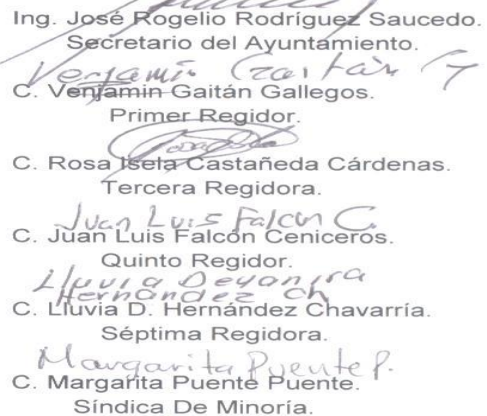 Ing. José Rogelio Rodríguez Saucedo.
Secretario del Ayuntamiento.
Venjamin Gaitán G
C. Venjamin Gaitán Gallegos.
Primer Regidor.
C. Rosa Isela Castañeda Cárdenas.
Tercera Regidora.
Juan Luis Falcon C.
C. Juan Luis Falcón Ceniceros.
Quinto Regidor.
Lluvia Deyanira
Hernández Ch
C. Lluvia D. Hernández Chavarría.
Séptima Regidora.
Margarita Puente P.
C. Margarita Puente Puente.
Síndica De Minoría.